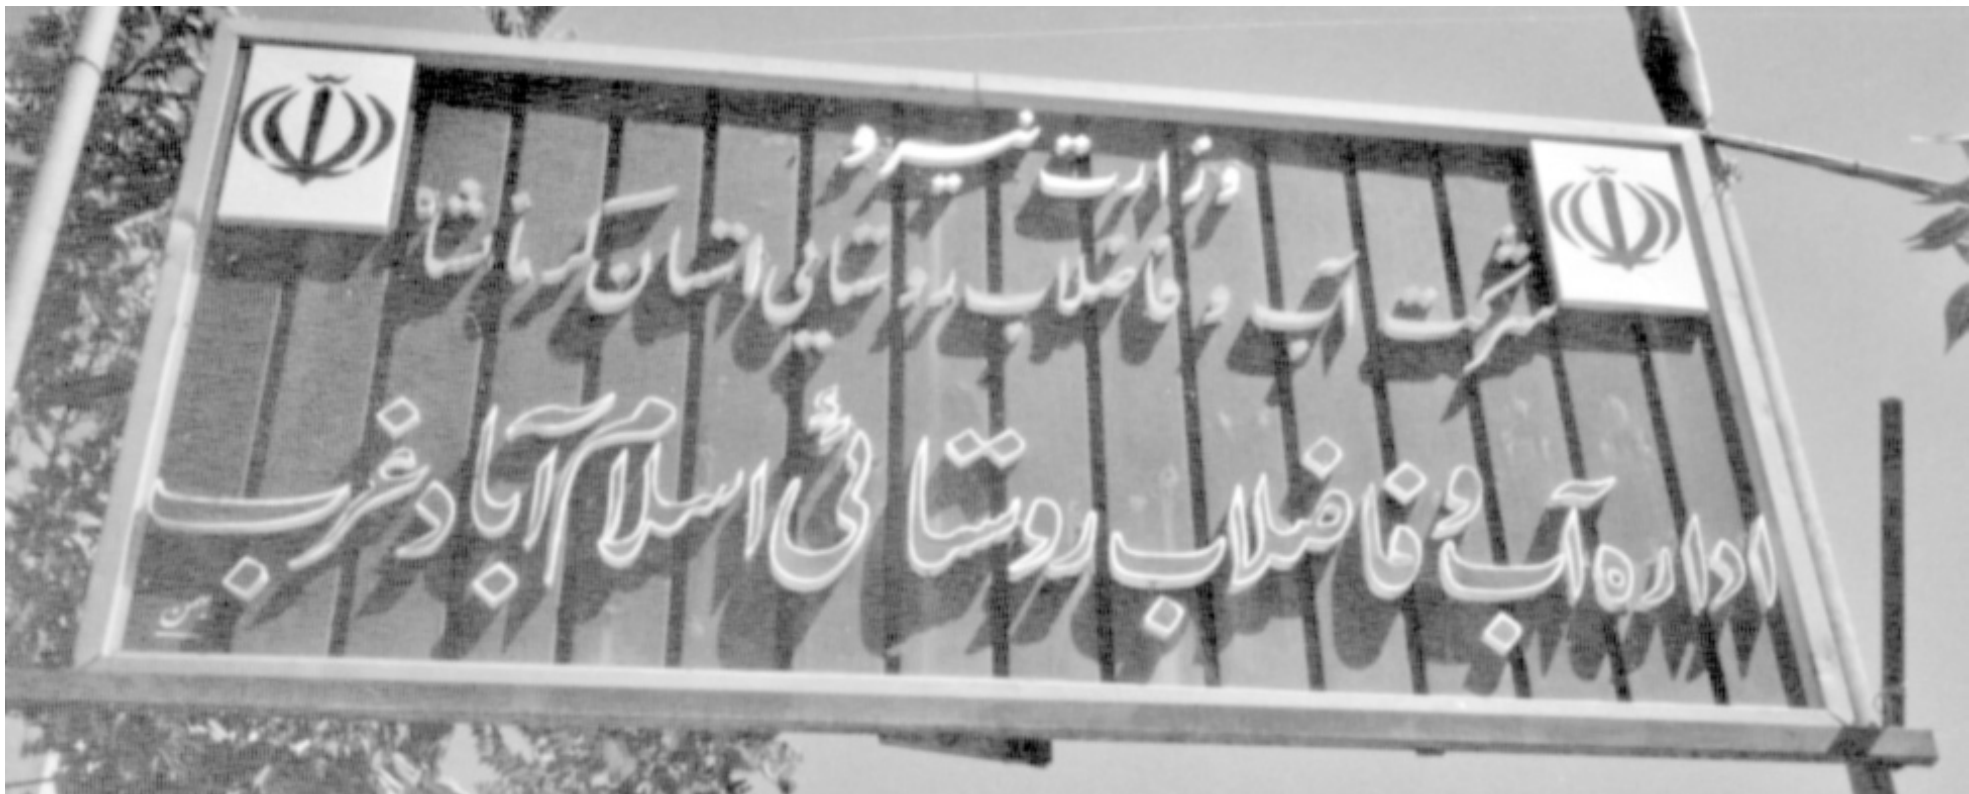 وزارت نیرو
شرکت آب و فاضلاب روستایی استان کرمانشاه
اداره آب و فاضلاب روستائی اسلام آباد غرب